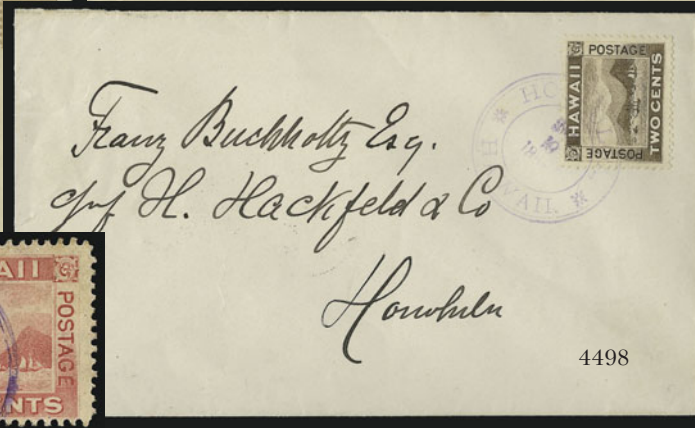 POSTAGE
HAWAII
TWO CENTS
POSTAGE
HO
18
WAII.
Franz Buchholtz Esq.
H. Hackfeld & Co
Honolulu
4498
AII
POSTAGE
ENTS